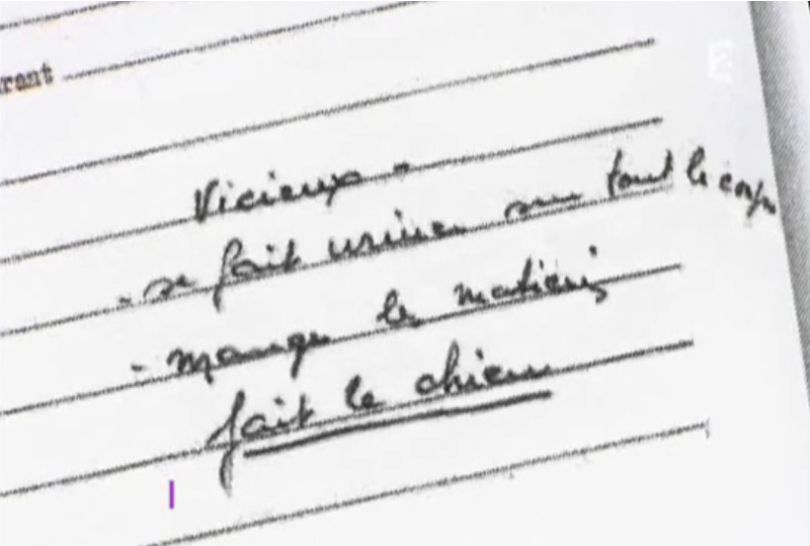 rant
Vicieux -
- se fait uriner sur tout le corps
- mange les matières
fait le chien